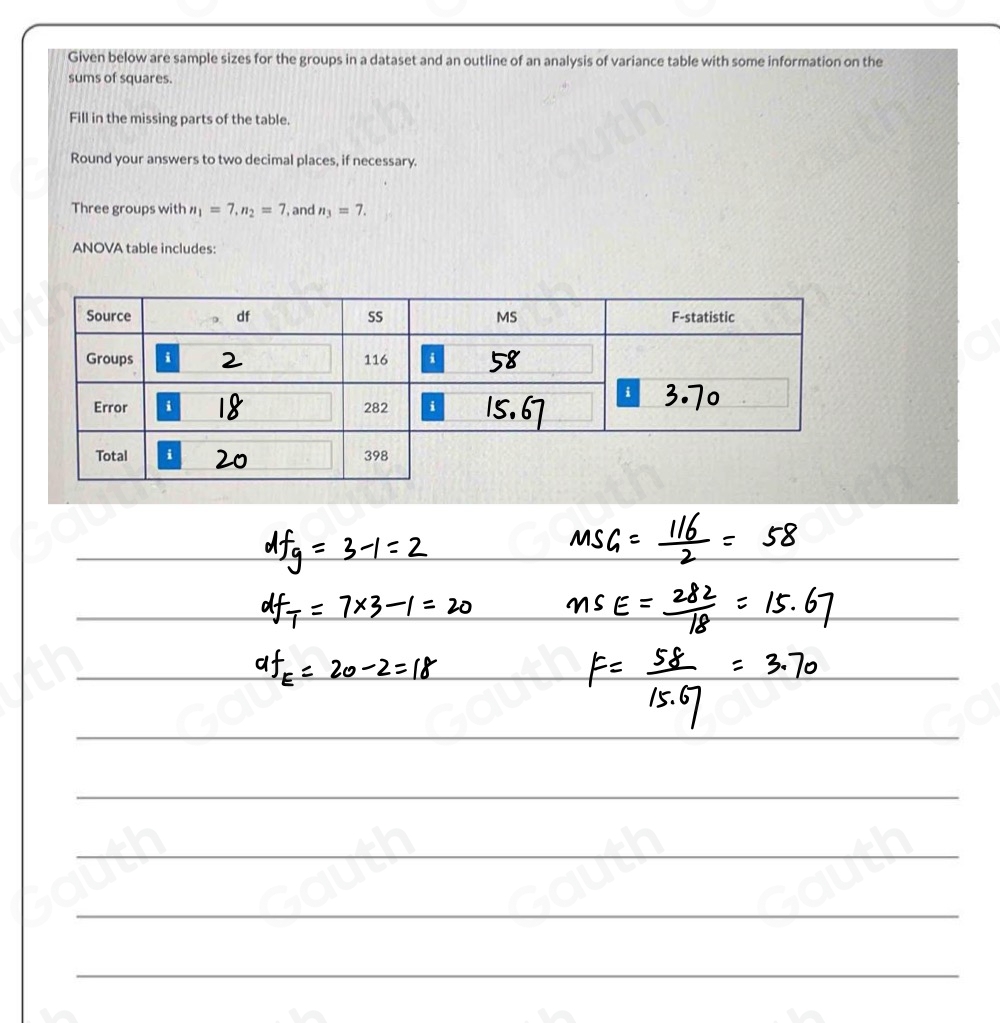 Given below are sample sizes for the groups in a dataset and an outline of an analysis of variance table with some information on the
sums of squares.
Fill in the missing parts of the table.
Round your answers to two decimal places, if necessary.
Three groups with n₁ = 7, n₂ = 7, and n₃ = 7.
ANOVA table includes:
Source df SS MS F-statistic
Groups i 2 116 i 58
i 3.70
Error i 18 282 i 15.67
Total i 20 398
dfg = 3-1=2 MSG = 116/2 = 58
df_T = 7×3-1=20 MSE = 282/18 = 15.67
df_E = 20-2=18 F= 58/15.67 = 3.70
Gauth